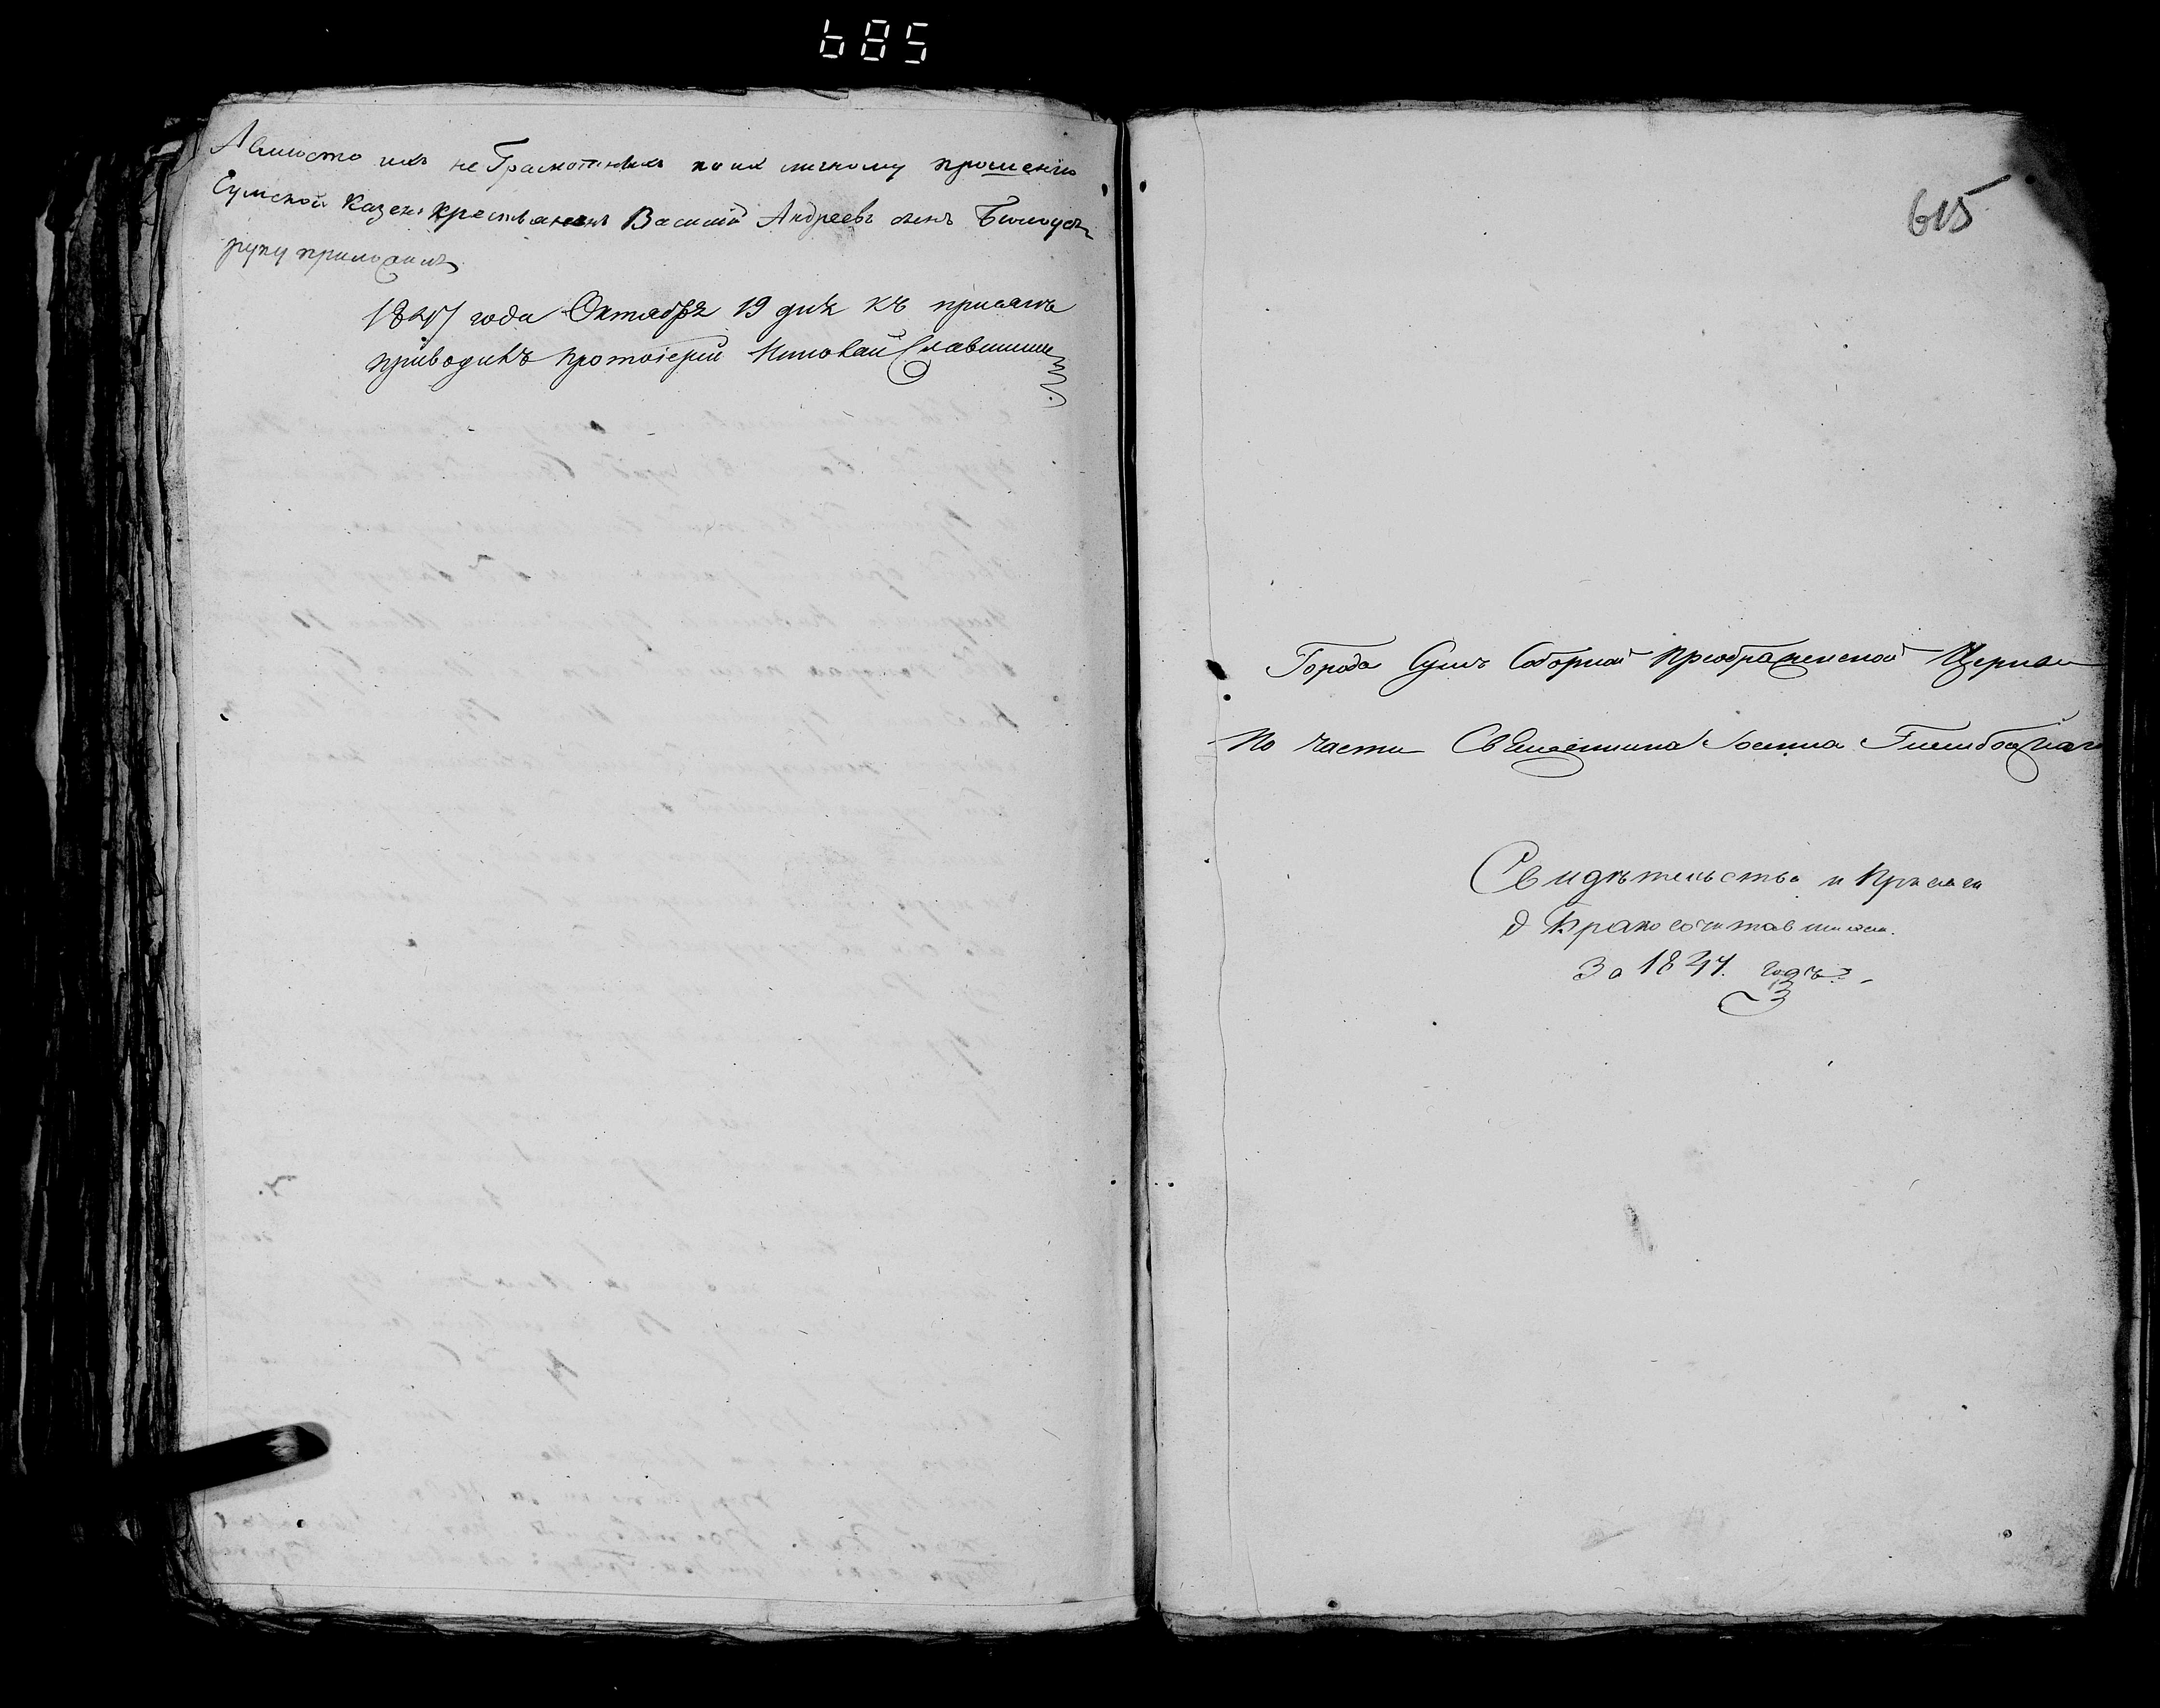 685
А вмѣсто ихъ не Грамотныхъ по их личному прошенію
Сумской Казен: крестьянинъ Василій Андреевъ сынъ Билоусъ
руку приложилъ
1847 года Октября 19 дня къ присягѣ
приводилъ протоіерей Николай
615
Города Сумъ Соборной Преображенской Церкви
По части Священника Іоанна
Свидѣтельства и Присяги
о Бракосочитавшихся
За 1847. годъ.